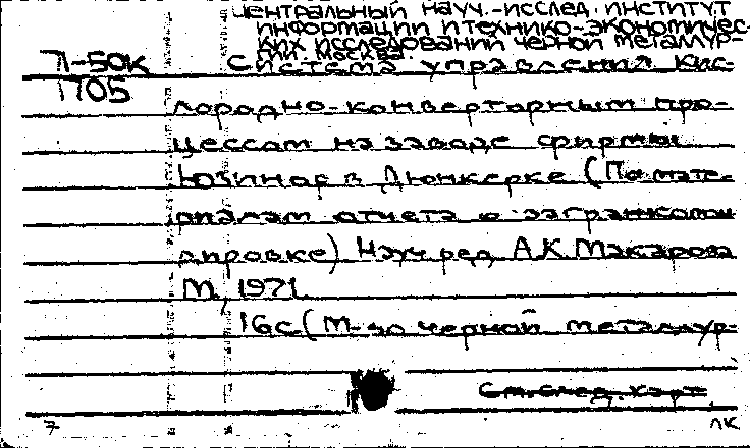 Центральный науч.-исслед. институт
информации и технико-экономичес-
ких исследований черной металлур-
гии. Москва.
Л-50к Система управления кис-
1705
лородно-конвертерным про-
цессом на заводе фирмы
Юзинор в Дюнкерке (По мате-
риалам отчета о загранкоман
дировке) Науч ред А.К. Макарова
М., 1971.
16с. (М-во черной металлур-
См. след. карт
7 ЛК